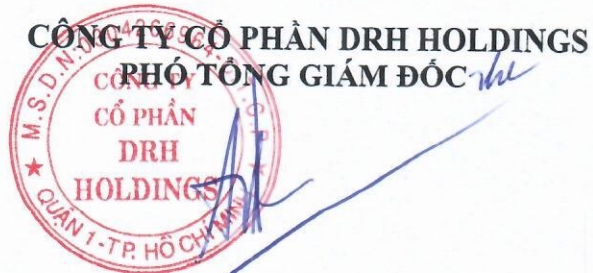 CÔNG TY CỔ PHẦN DRH HOLDINGS
PHÓ TỔNG GIÁM ĐỐC
CÔNG TY
CỔ PHẦN
DRH
HOLDINGS
QUẬN 1-TP. HỒ CHÍ MINH